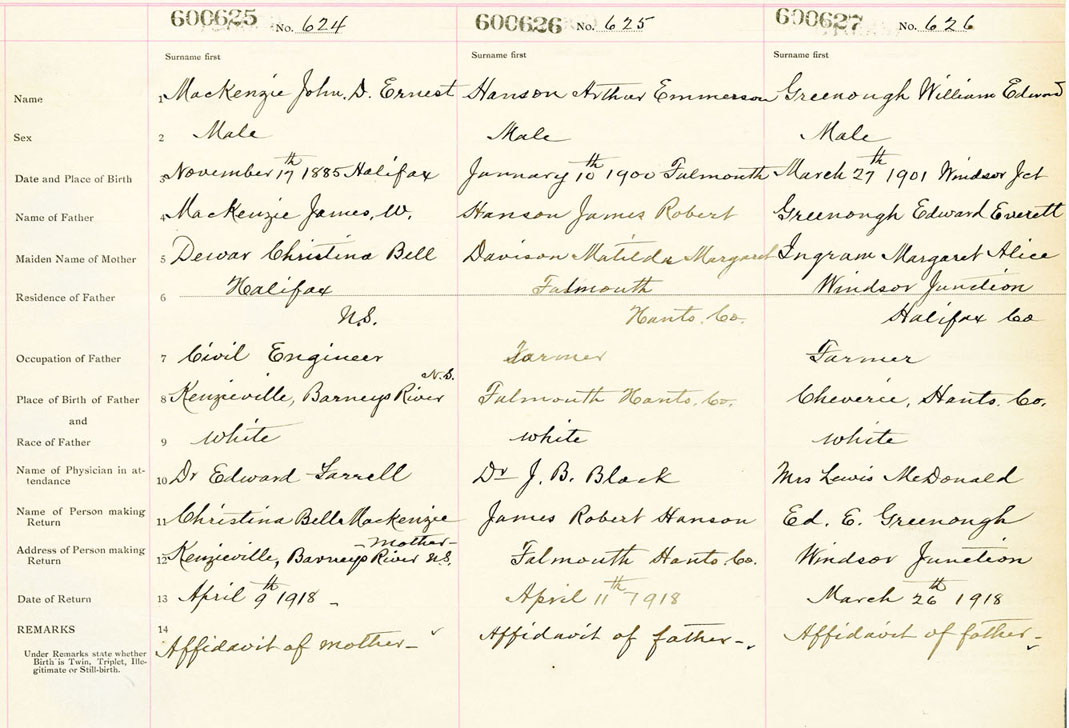 600625 No. 624 600626 No. 625 600627 No. 626
Surname first Surname first Surname first
Name 1 Mackenzie John. D. Ernest Hanson Arthur Emmerson Greenough William Edward
Sex 2 Male Male Male
Date and Place of Birth 3 November 17th 1885 Halifax Jannary 10th 1900 Falmouth March 27th 1901 Windsor Jct
Name of Father 4 MacKenzie James, W. Hanson James Robert Greenough Edward Everett
Maiden Name of Mother 5 Dewar Christina Bell Davison Matilda Margaret Ingram Margaret Alice
Residence of Father 6 Halifax Falmouth Windsor Junction
N.S. Hants. Co. Halifax Co
Occupation of Father 7 Civil Engineer Farmer Farmer
N.S.
Place of Birth of Father 8 Kenzieville, Barneys River Falmouth Hants. Co. Cheverie, Hants. Co.
and
Race of Father 9 white white white
Name of Physician in at-
tendance 10 Dr Edward Farrell Dr J. B. Black Mrs Lewis McDonald
Name of Person making
Return 11 Christina Bell Mackenzie James Robert Hanson Ed. E. Greenough
-Mother-
Address of Person making
Return 12 Kenzieville, Barneys River N.S. Falmouth Hants. Co. Windsor Junction
Date of Return 13 April 9th 1918 - April 11th 1918 March 26th 1918
REMARKS 14 Affidavit of mother- Affidavit of father- Affidavit of father-
Under Remarks state whether
Birth is Twin, Triplet, Ille-
gitimate or Still-birth.